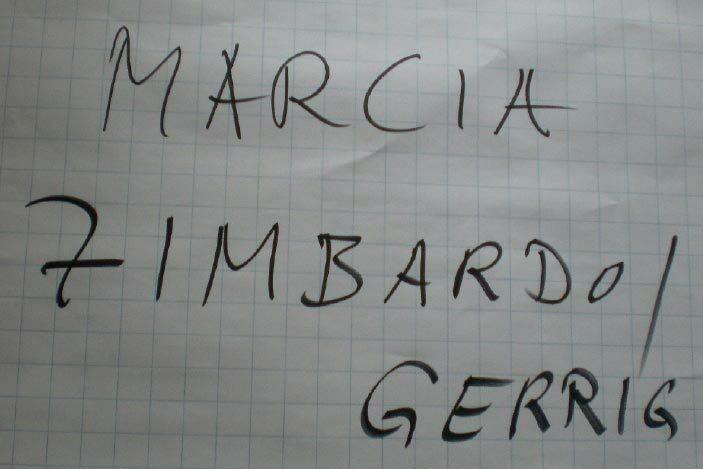 MARCIA
ZIMBARDO/
GERRIG